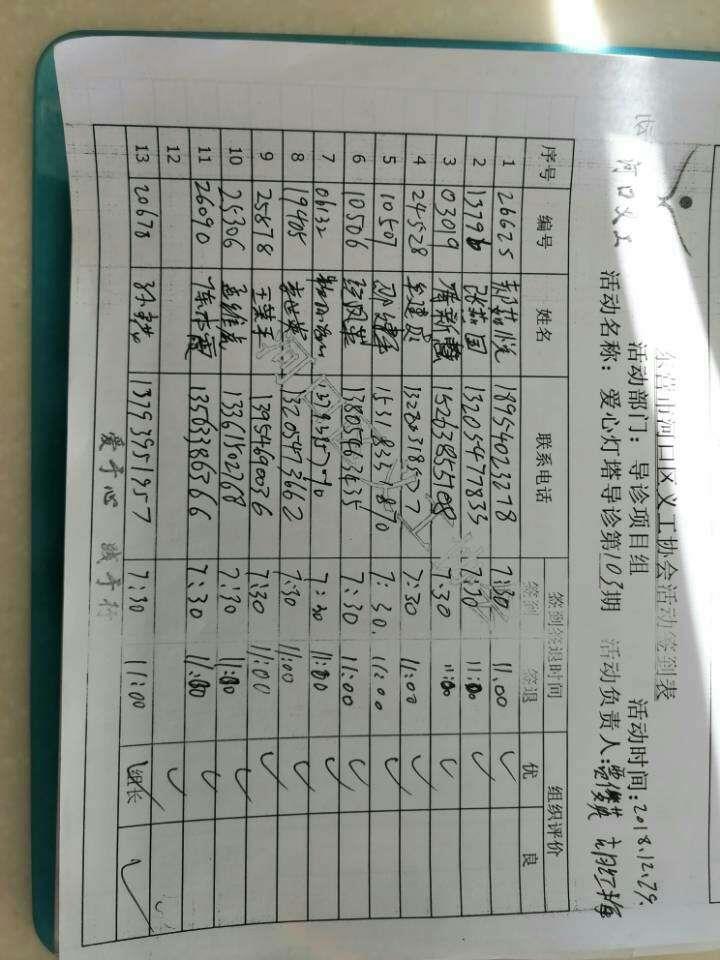 河口义工
东营市河口区义工协会活动签到表
活动部门：导诊项目组 活动时间：2018.12.29.
活动名称：爱心灯塔导诊第103期 活动负责人：
序号 编号 姓名 联系电话 签到签退时间 组织评价
签到 签退 优 良
1 26625 18954023278 7:30 11:00 ✓
2 13796 张茹国 13205477833 7:30 11:00 ✓
3 03019 15263855108 7:30 11:00 ✓
4 24528 7:30 11:00 ✓
5 10507 7:30. 11:00 ✓
6 10506 13805463435 7:30 11:00 ✓
7 06132 7:30 11:00 ✓
8 19405 13205473662 7:30 11:00 ✓
9 25878 王荣美 13954690036 7:30 11:00 ✓
10 25306 孟维虎 13361102768 7:30 11:00 ✓
11 26090 陈树霞 13563386366 7:30 11:00 ✓
12 ✓
13 20678 13793951957 7:30 11:00 组长 ✓
爱于心 践于行